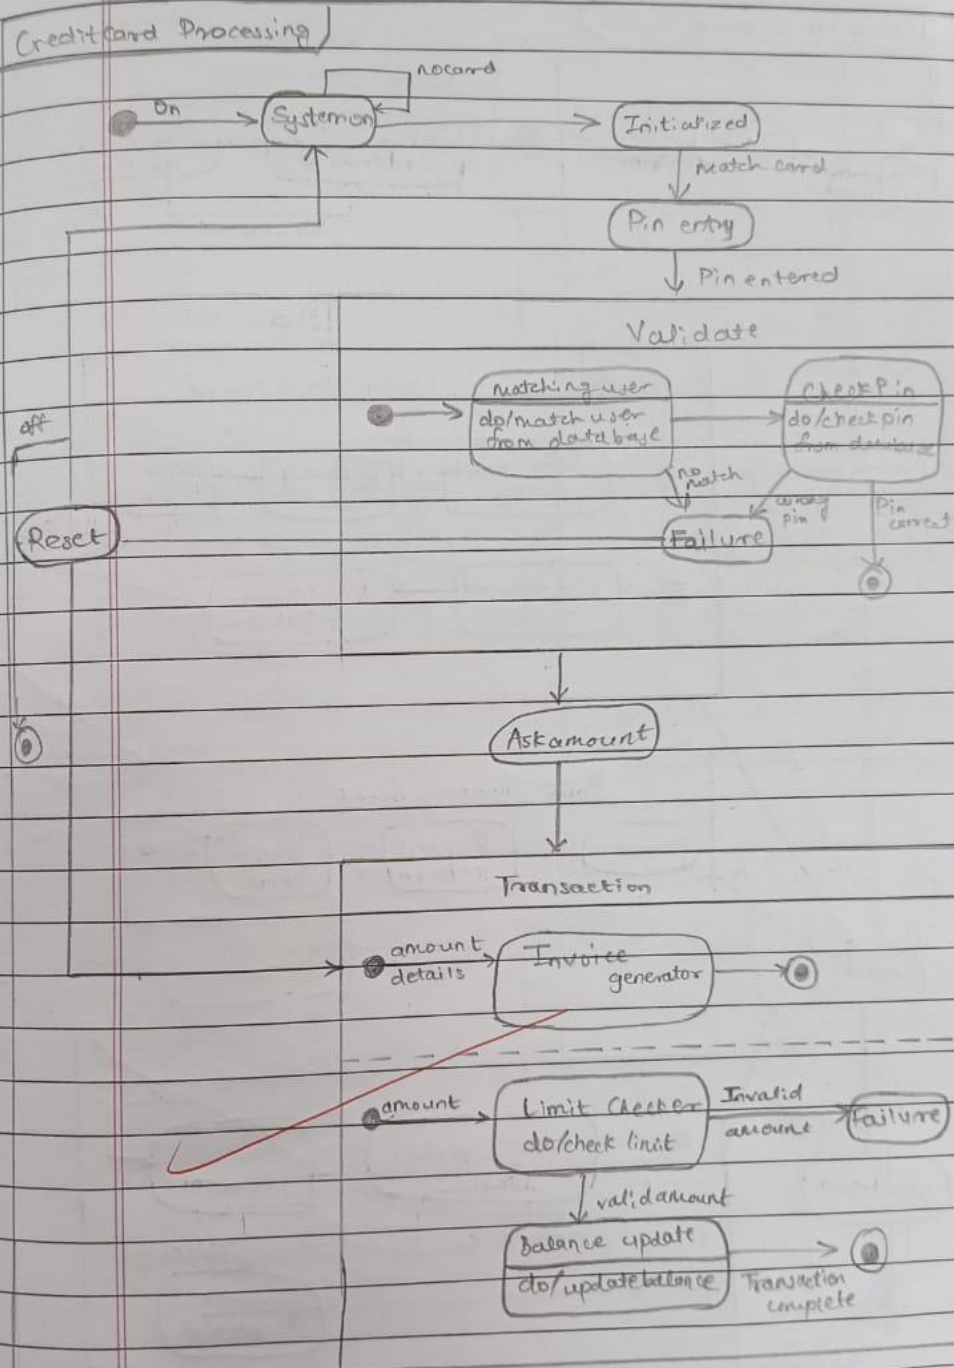 Creditcard Processing
nocard
On
Systemon
Initialized
Match card
Pin entry
Pin entered
Validate
Matching user
do/match user
from database
CheckPin
do/checkpin
from database
off
no match
wrong pin
Pin correct
Reset
Failure
Askamount
Transaction
amount
details
Invoice
generator
amount
Limit Checker
do/check limit
Invalid
amount
Failure
validamount
Balance update
do/updatebalance
Transaction
complete